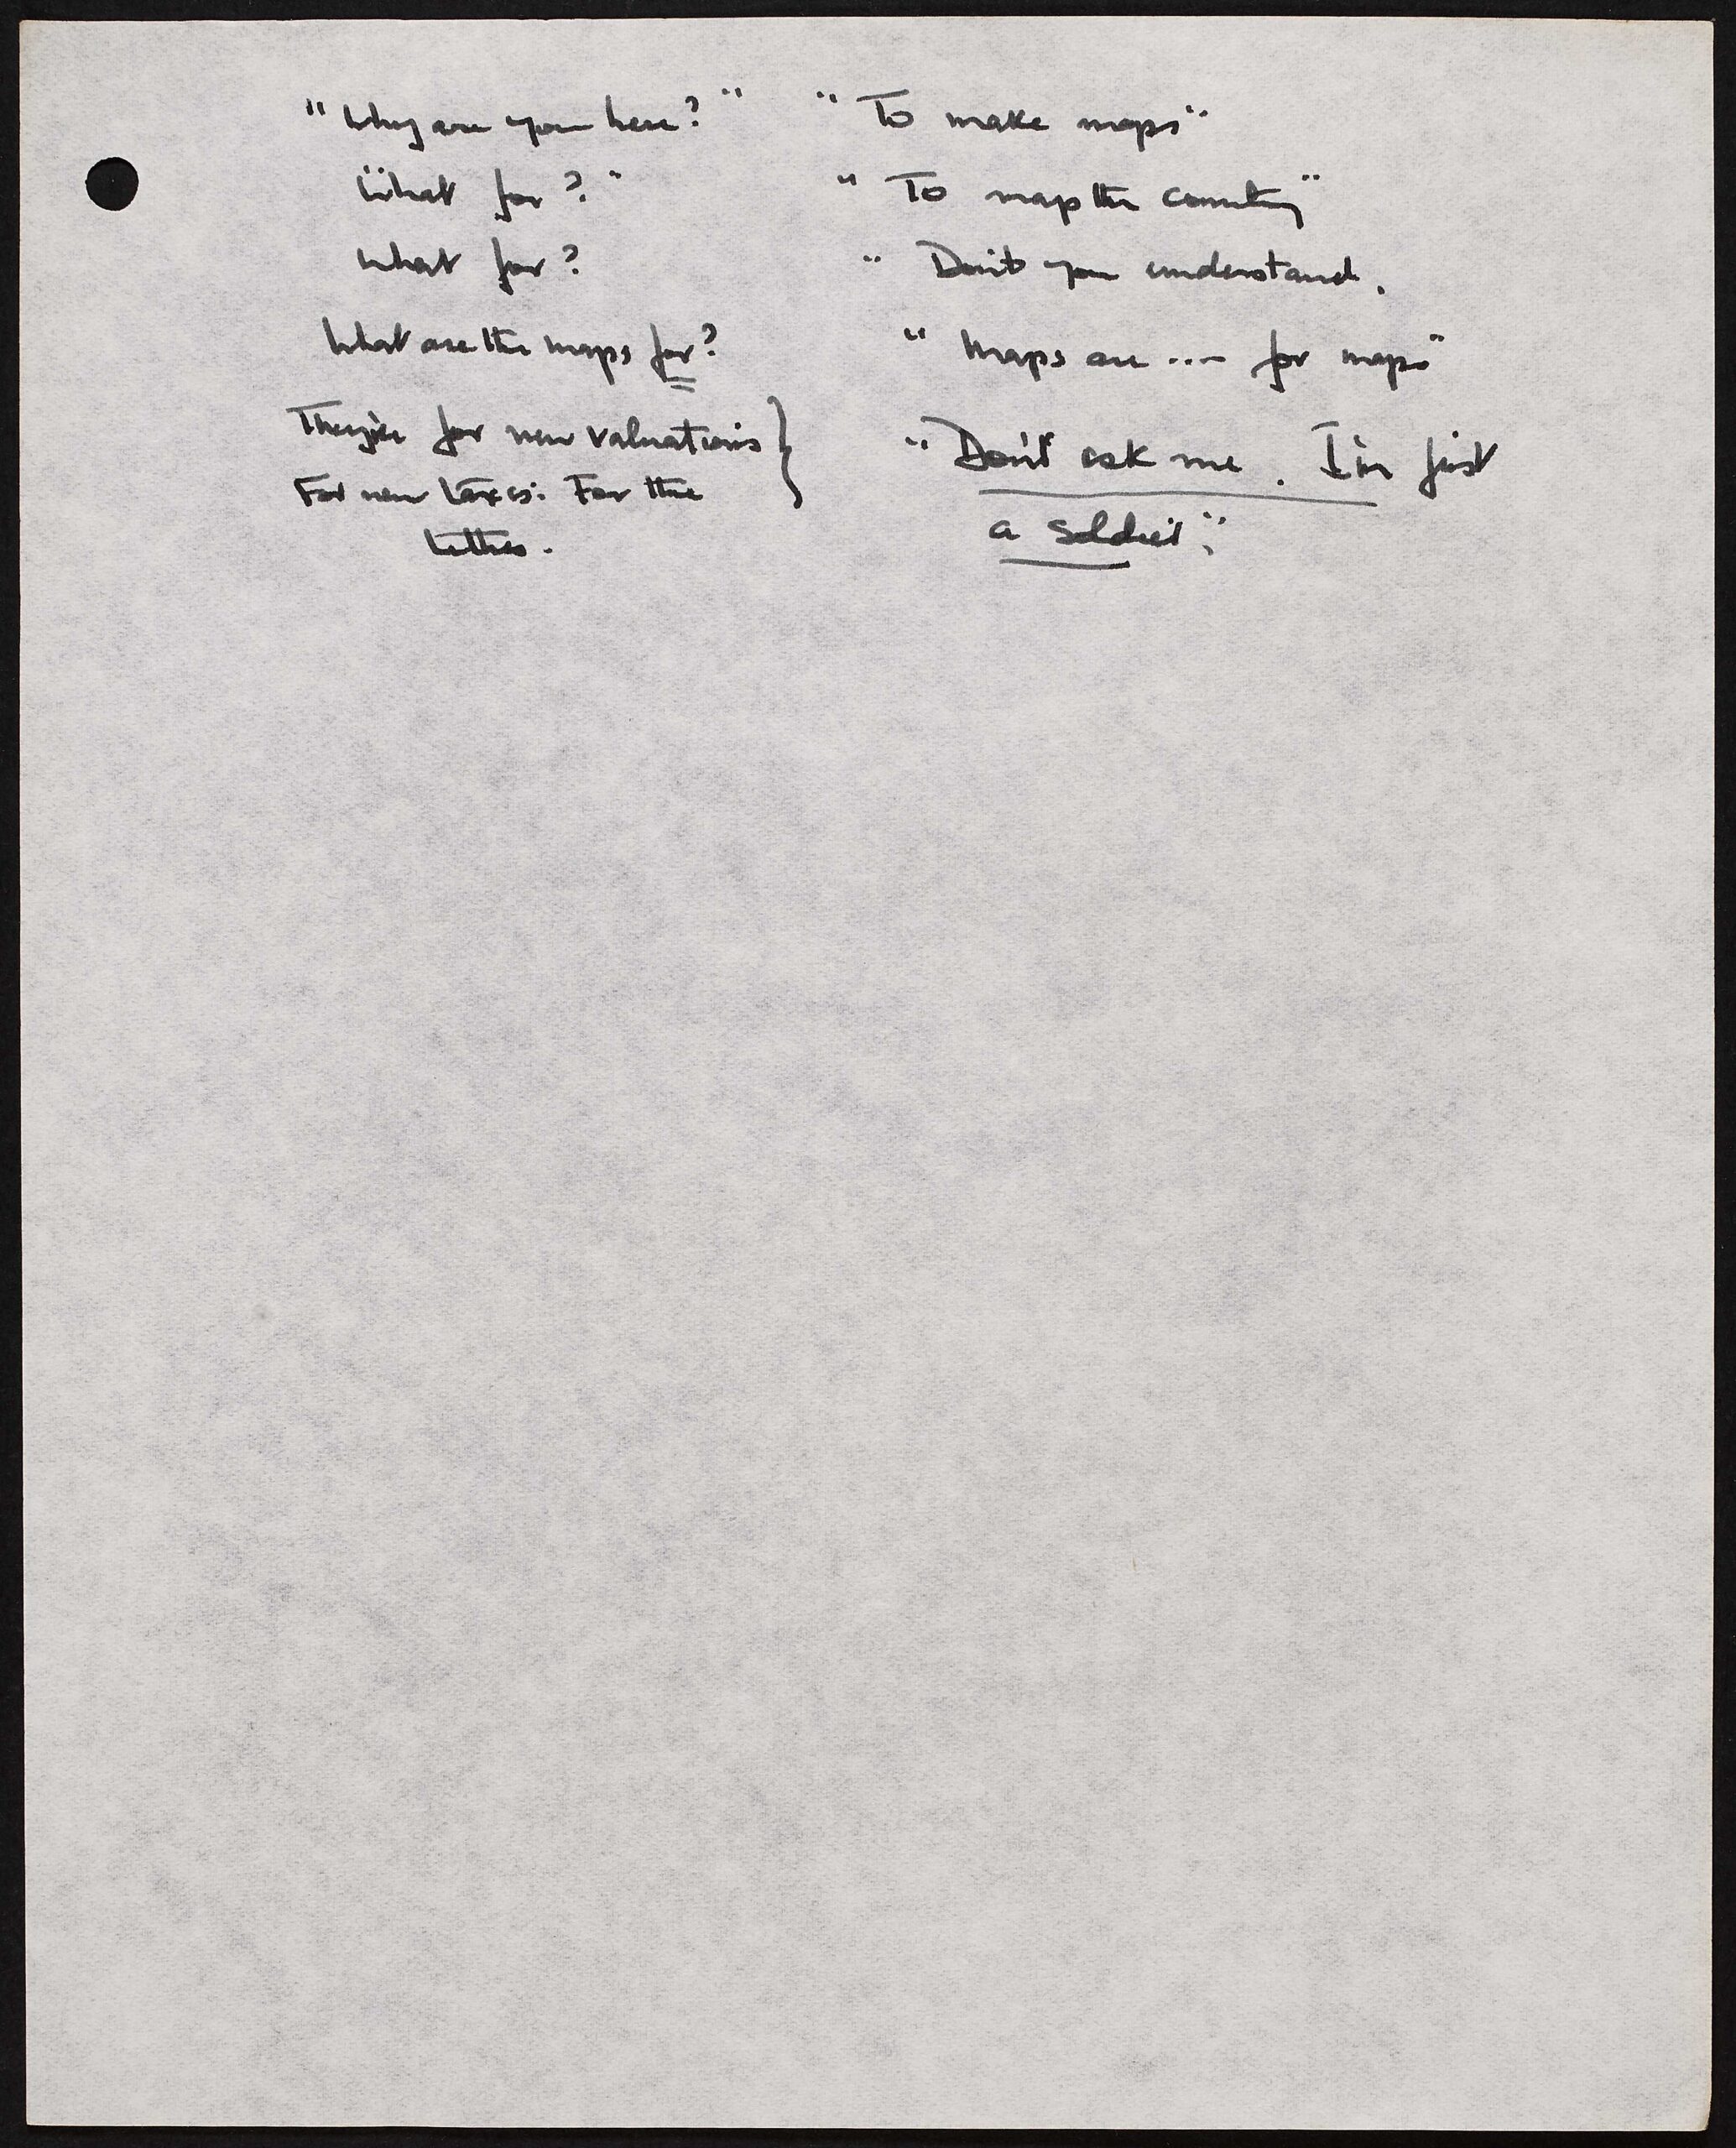 "Why are you here?" "To make maps"
"What for?" "To map the country"
What for? "Don't you understand.
What are the maps for? "Maps are .... for maps"
They're for new valuations } "Don't ask me. I'm just
For new taxes: For the
tithes. a soldier".